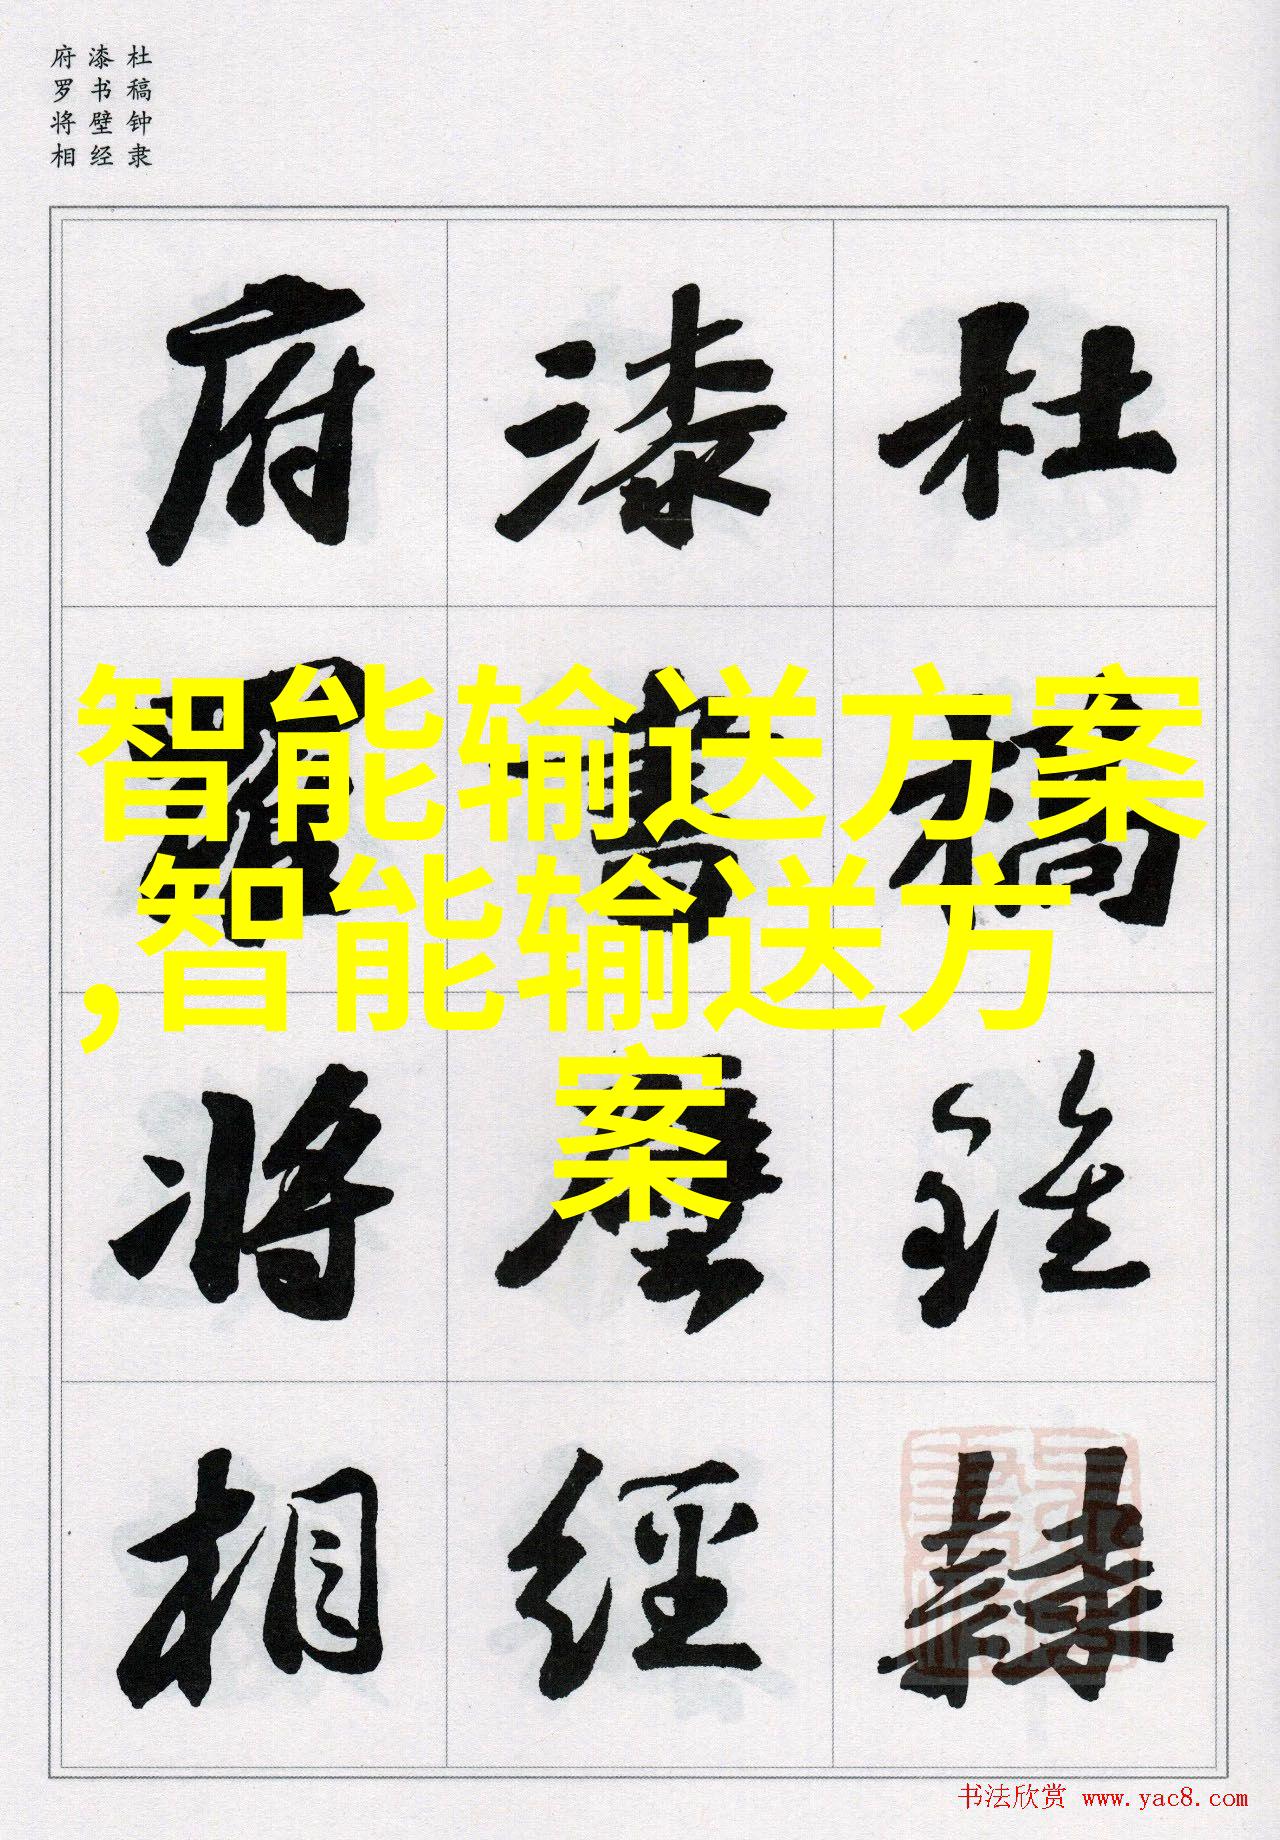 杜稿钟隶
漆书壁经
府罗将相
杜稾鍾隸
漆書壁經
府羅將相
智能输送方案
,智能输送方
案
书法欣赏 www.yac8.com